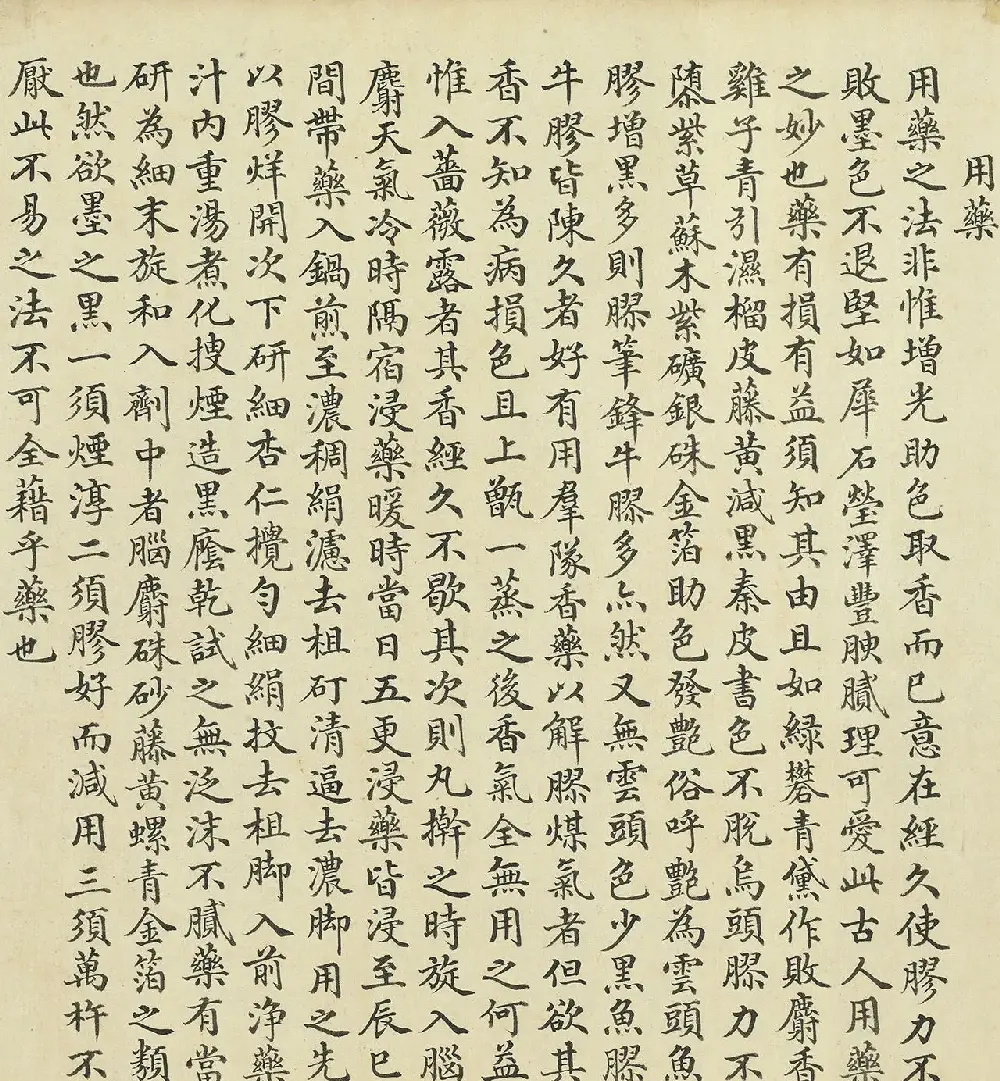 用藥
用藥之法非惟增光助色取香而已意在經久使膠力不
敗墨色不退堅如犀石瑩澤豐腴膩理可愛此古人用藥
之妙也藥有損有益須知其由且如緑礬青黛作敗麝香
雞子青引濕榴皮藤黄減黒秦皮書色不脫烏頭膠力不
隳紫草蘇木紫礦銀硃金箔助色發艷俗呼艷為雲頭魚
膠增黒多則膠筆鋒牛膠多亦然又無雲頭色少黒魚膠
牛膠皆陳久者好有用羣隊香藥以解膠煤氣者但欲其
香不知為病損色且上甑一蒸之後香氣全無用之何益
惟入薔薇露者其香經久不歇其次則丸擀之時旋入腦
麝天氣冷時隔宿浸藥暖時當日五更浸藥皆浸至辰巳
間帶藥入鍋煎至濃稠絹濾去柤矴清逼去濃脚用之先
以膠烊開次下研細杏仁攪勻細絹抆去柤脚入前浄藥
汁内重湯煮化搜煙造黒䕃乾試之無泛沫不膩藥有當
研為細末旋和入劑中者腦麝硃砂藤黄螺青金箔之類
也然欲墨之黒一須煙淳二須膠好而減用三須萬杵不
厭此不易之法不可全藉乎藥也